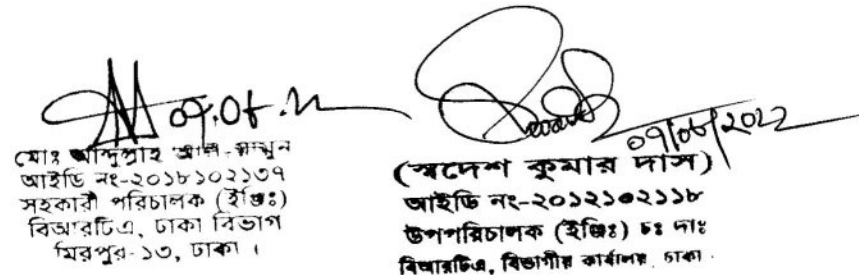 ০৭.০৮.২২
মোঃ আব্দুল্লাহ আল-মামুন
আইডি নং-২০১৮১০২১৩৭
সহকারী পরিচালক (ইঞ্জিঃ)
বিআরটিএ, ঢাকা বিভাগ
মিরপুর-১৩, ঢাকা ।
০৭/০৮/২০২২
(স্বদেশ কুমার দাস)
আইডি নং-২০১২১০২১১৮
উপপরিচালক (ইঞ্জিঃ) চঃ দাঃ
বিআরটিএ, বিভাগীয় কার্যালয়, ঢাকা